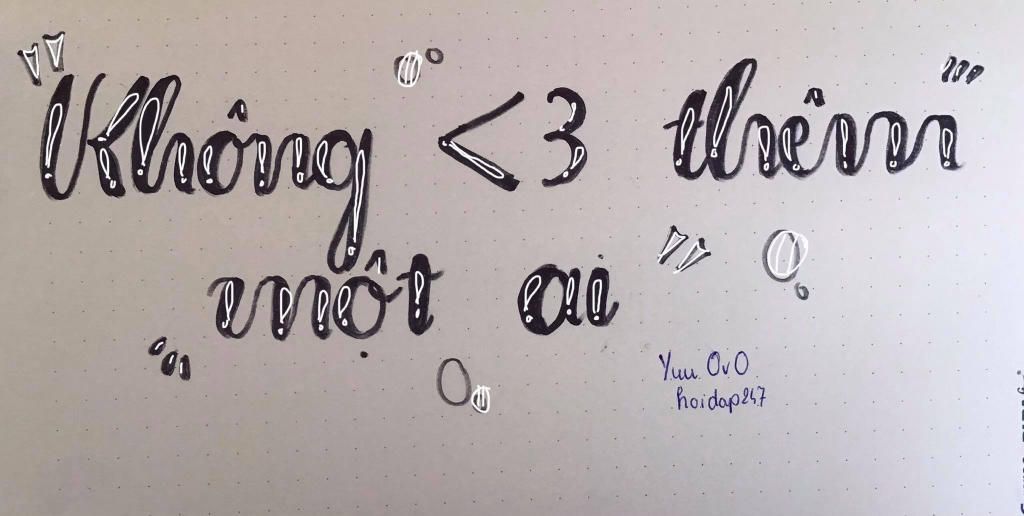 "Không <3 thêm
một ai"
Yuu OvO
hoidap247